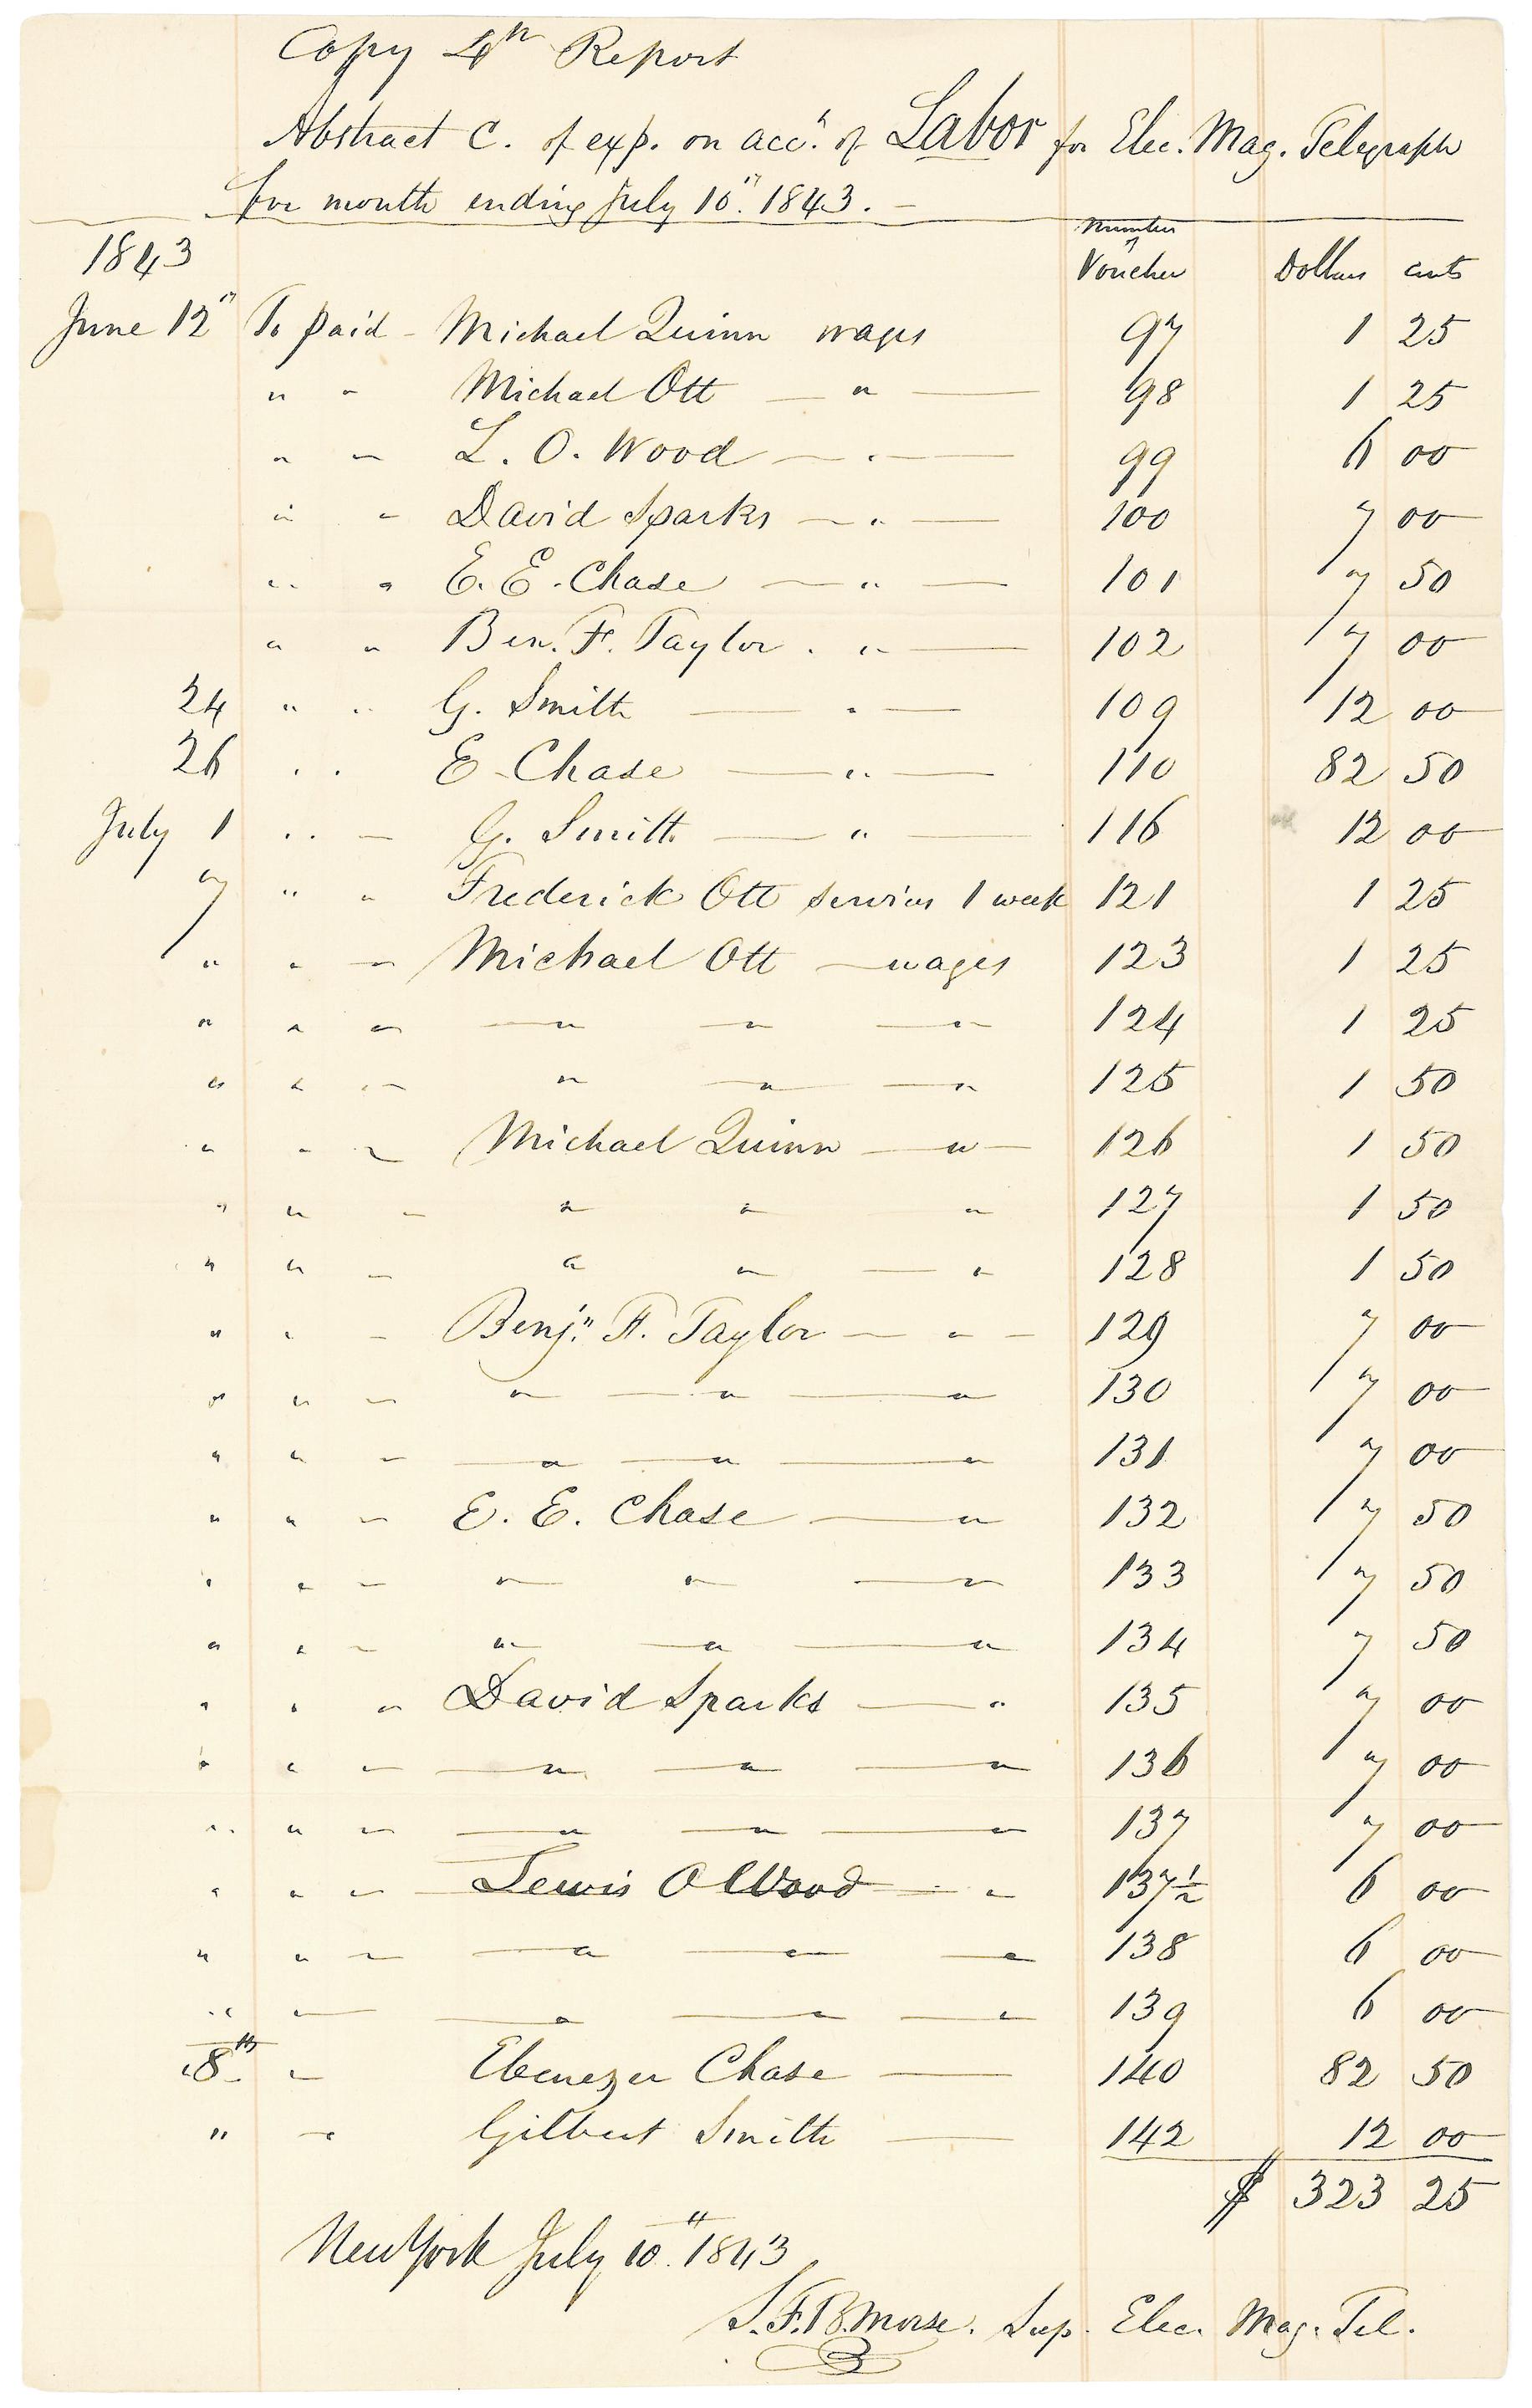 Copy 4th Report
Abstract C. of exp. on acct. of Labor for Elec. Mag. Telegraph
for month ending July 10th. 1843. –
1843 Number of Voucher Dollars cents
June 12" To paid - Michael Quinn wages 97 1 25
" " Michael Ott — " — 98 1 25
" " L. O. Wood — " — 99 6 00
" " David Sparks — " — 100 7 00
" " E. E. Chase — " — 101 7 50
" " Ben. F. Taylor . " — 102 7 00
24 " " G. Smith — " — 109 12 00
26 " " E. Chase — " — 110 82 50
July 1 " " G. Smith — " — 116 12 00
7 " " Frederick Ott services 1 week 121 1 25
" " " Michael Ott — wages 123 1 25
" " " " " " 124 1 25
" " " " " " 125 1 50
" " " Michael Quinn — " — 126 1 50
" " " " " " 127 1 50
" " " " " " 128 1 50
" " " Benjn. F. Taylor — " — 129 7 00
" " " " " " 130 7 00
" " " " " " 131 7 00
" " " E. E. Chase — " 132 7 50
" " " " " " 133 7 50
" " " " " " 134 7 50
" " " David Sparks — " 135 7 00
" " " " " " 136 7 00
" " " " " " 137 7 00
" " " Lewis O Wood — " 137½ 6 00
" " " " " " 138 6 00
" " " " " 139 6 00
8th " Ebenezer Chase — 140 82 50
" " Gilbert Smith — 142 12 00
$ 323 25
New York July 10th. 1843
S. F. B. Morse. Sup. Elec. Mag. Tel.